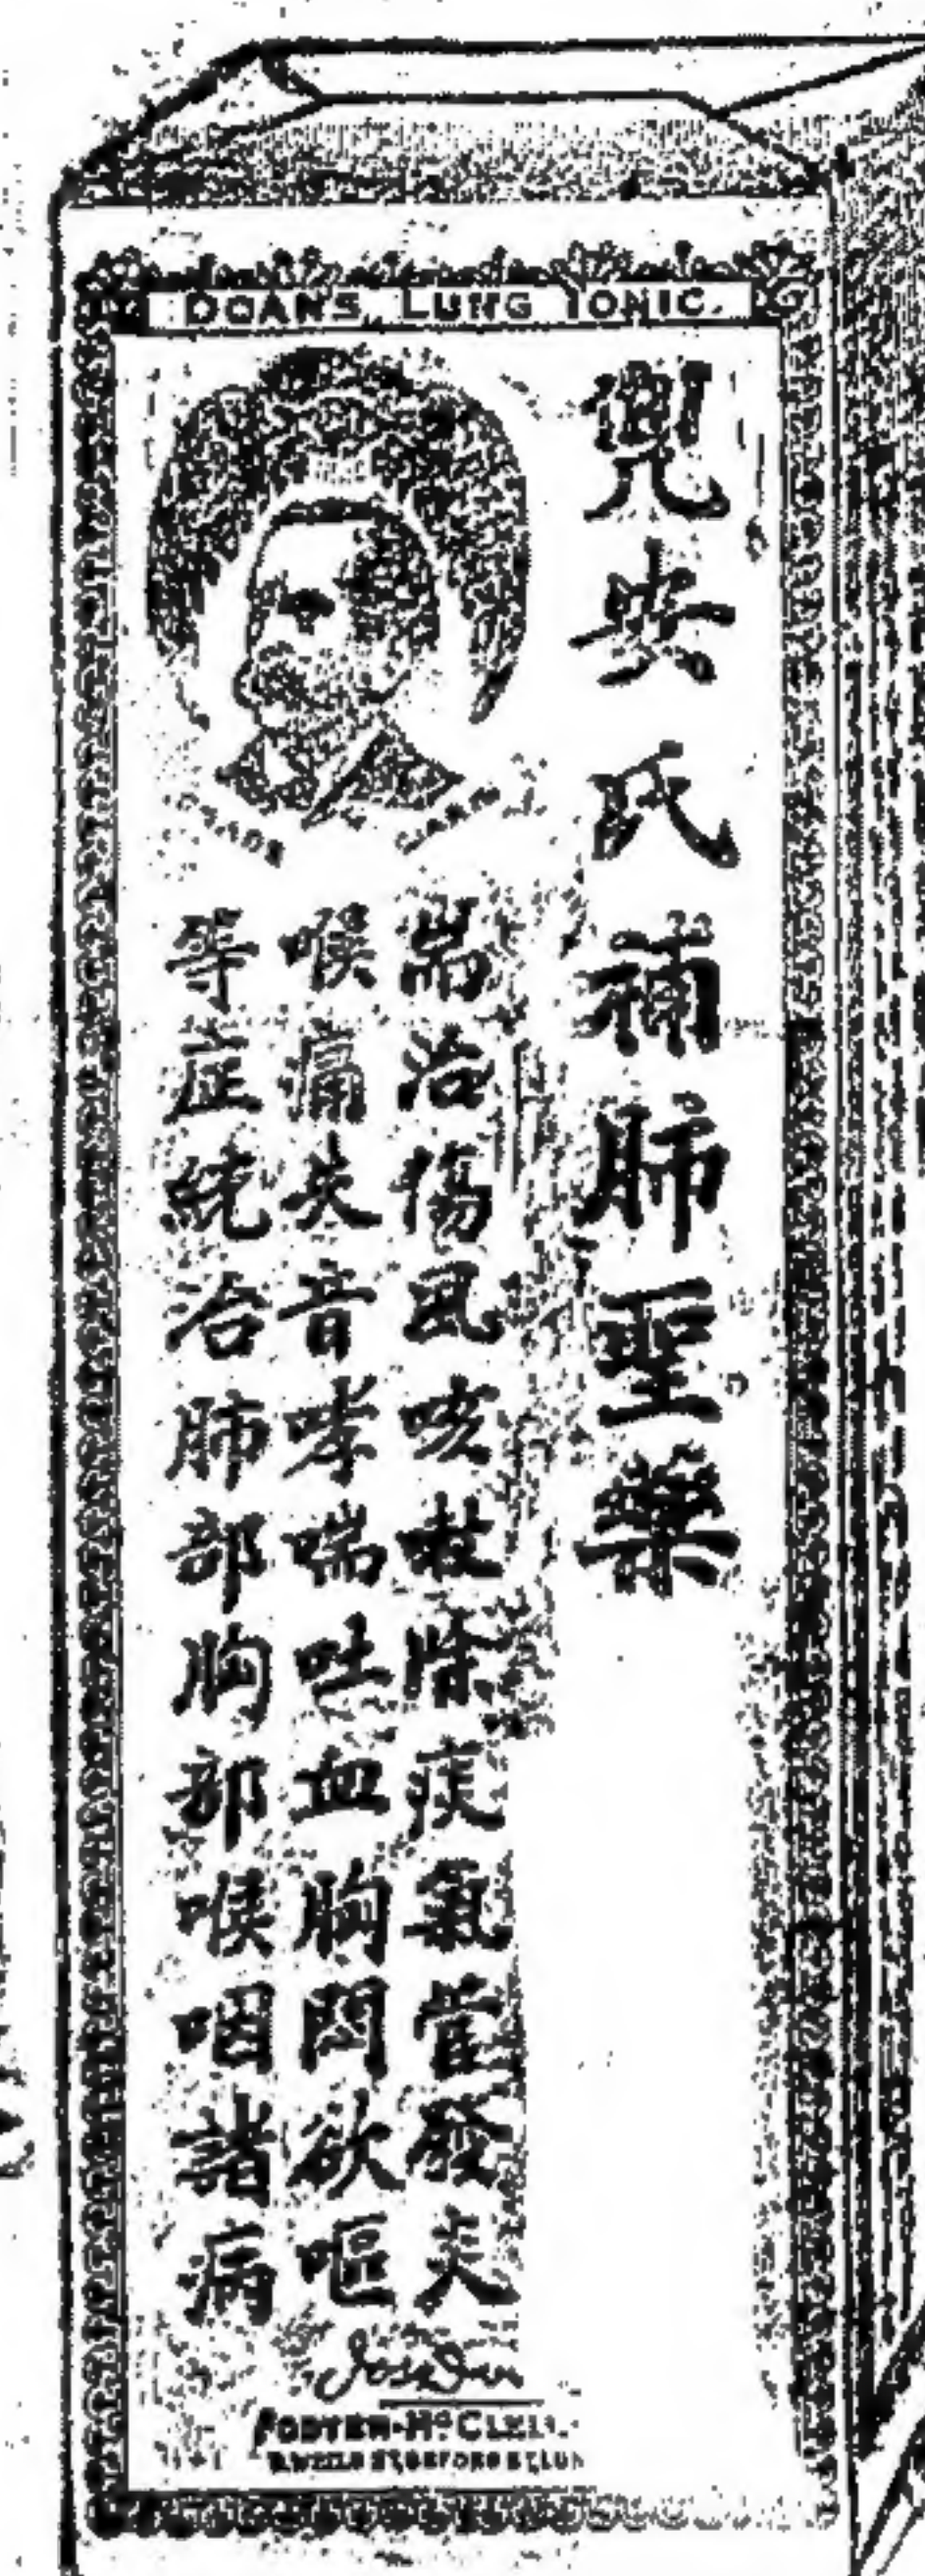 DOAN'S LUNG TONIC.
TRADE MARK
兜安氏補肺聖藥
耑治傷風咳嗽除痰氣管發炎
喉痛失音哮喘吐血胸悶欲嘔
等症統治肺部胸部喉咽諸病
FOSTER-McCLELL